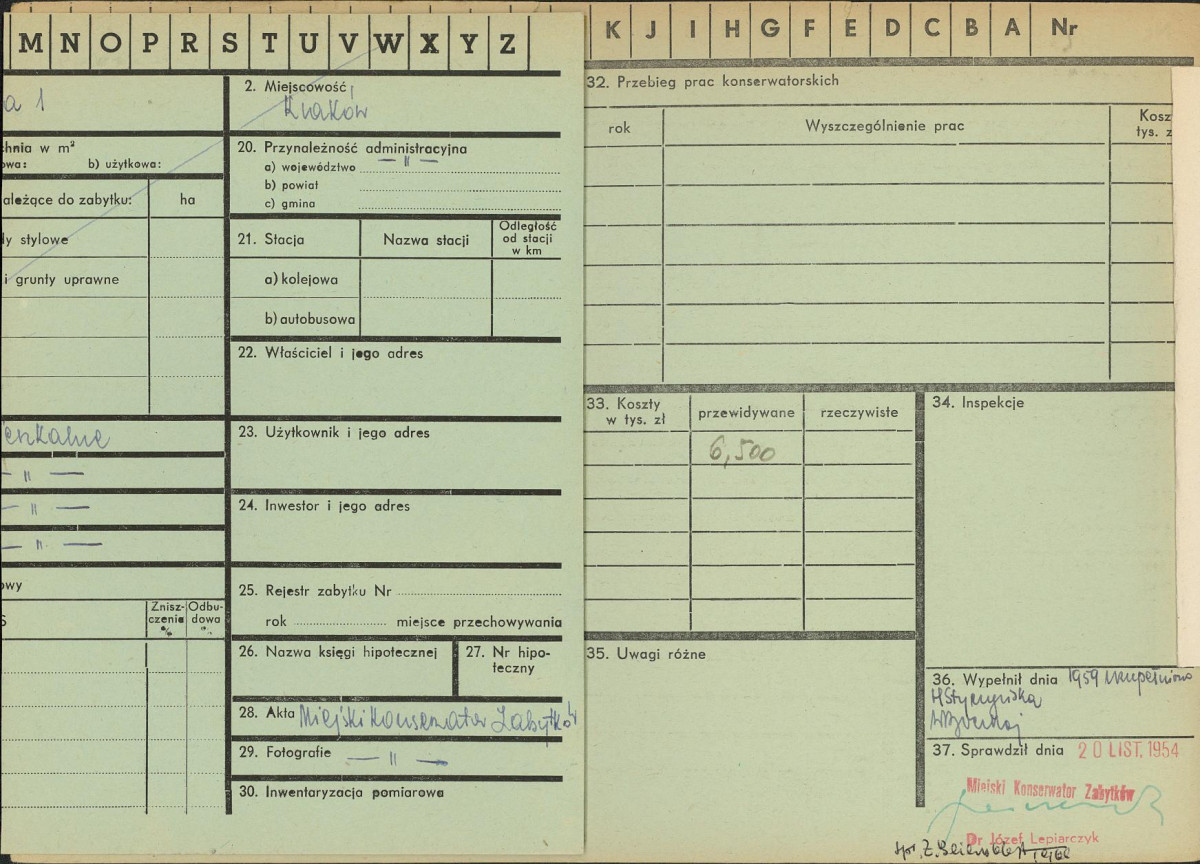 M N O P R S T U V W X Y Z
K J I H G F E D C B A Nr
a 1
2. Miejscowość
Kraków
chnia w m²
owa: b) użytkowa:
ależące do zabytku: ha
dy stylowe
i grunty uprawne
20. Przynależność administracyjna
— " —
a) województwo
b) powiat
c) gmina
21. Stacja Nazwa stacji Odległość od stacji w km
a) kolejowa
b) autobusowa
22. Właściciel i jego adres
23. Użytkownik i jego adres
eszkalne
— " —
— " —
— " —
24. Inwestor i jego adres
owy
Znisz-czenia % Odbu-dowa %
25. Rejestr zabytku Nr
rok miejsce przechowywania
26. Nazwa księgi hipotecznej
27. Nr hipo-
teczny
28. Akta Miejski Konserwator Zabytków
29. Fotografie — " —
30. Inwentaryzacja pomiarowa
32. Przebieg prac konserwatorskich
rok Wyszczególnienie prac Kosz
tys. z
33. Koszty
w tys. zł
przewidywane rzeczywiste
6,500
34. Inspekcje
35. Uwagi różne
36. Wypełnił dnia 1959 uzupełniono
37. Sprawdził dnia 20 LIST. 1954
Miejski Konserwator Zabytków
Dr Józef Lepiarczyk